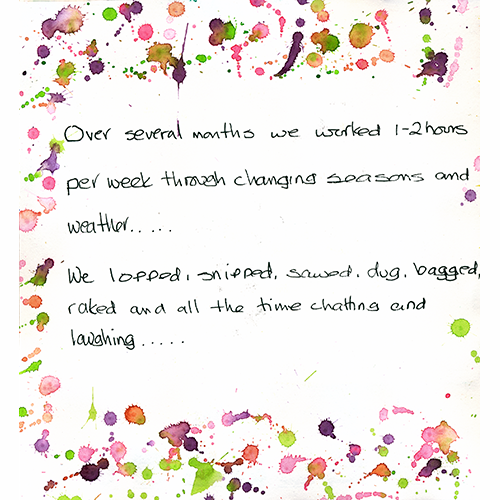 Over several months we worked 1-2 hours
per week through changing seasons and
weather.....
We lopped, snipped, sawed, dug, bagged,
raked and all the time chatting and
laughing.....